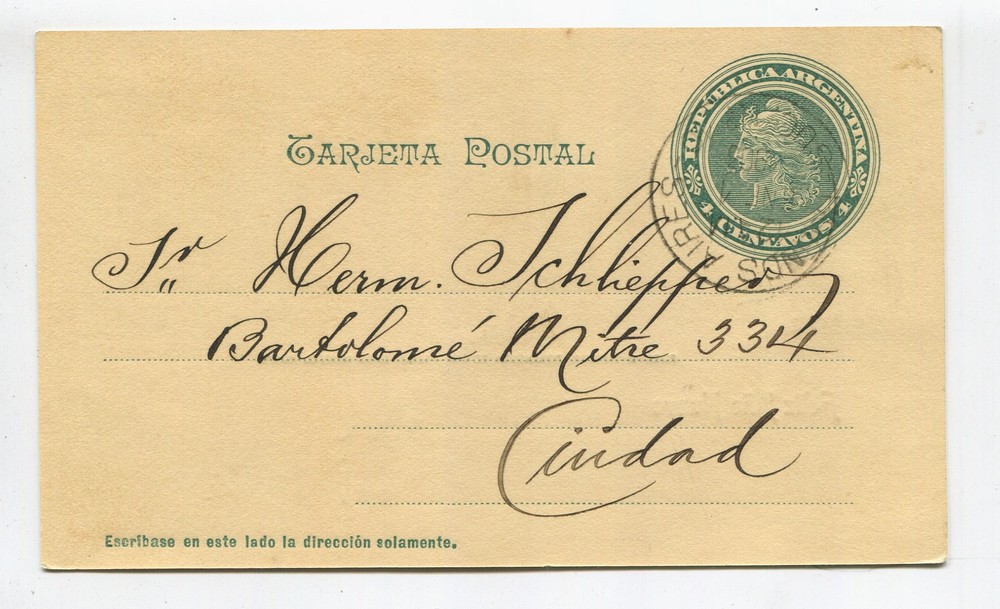 REPÚBLICA ARGENTINA
4 CENTAVOS 4
TARJETA POSTAL
BUENOS AIRES
Sr Herm. Schlieper
Bartolomé Mitre 334
Ciudad
Escríbase en este lado la dirección solamente.